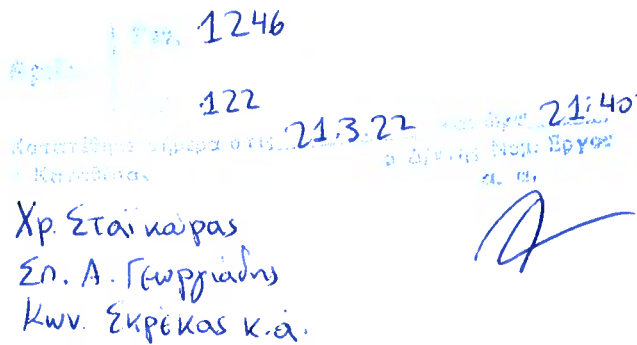 Γεν. 1246
Αριθ.
122
Κατατέθηκε σήμερα στις 21.3.22 και ώρα 21:40
ο Καταθέσας ο Δ/ντής Νομ. Έργου
α. α.
Χρ. Σταϊκούρας
Σπ. Α. Γεωργιάδης
Κων. Σκρέκας κ.ά.